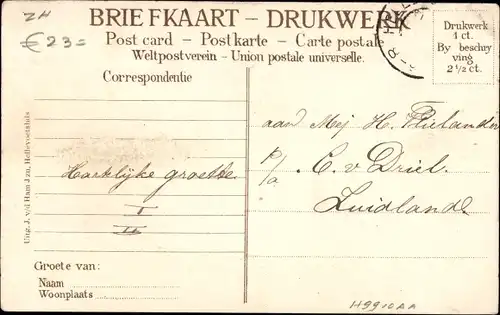 ZH
€ 23=
BRIEFKAART – DRUKWERK
Post card – Postkarte – Carte postale
Weltpostverein – Union postale universelle.
Drukwerk
1 ct.
By beschry
ving
2½ ct.
Correspondentie
Hartelijke groette.
I
II
aan Mej H.
p/a C. v Driel.
Zuidland.
Uitg. J. v/d Ham Jzn, Hellevoetsluis
Groete van:
Naam
Woonplaats
H9910AA